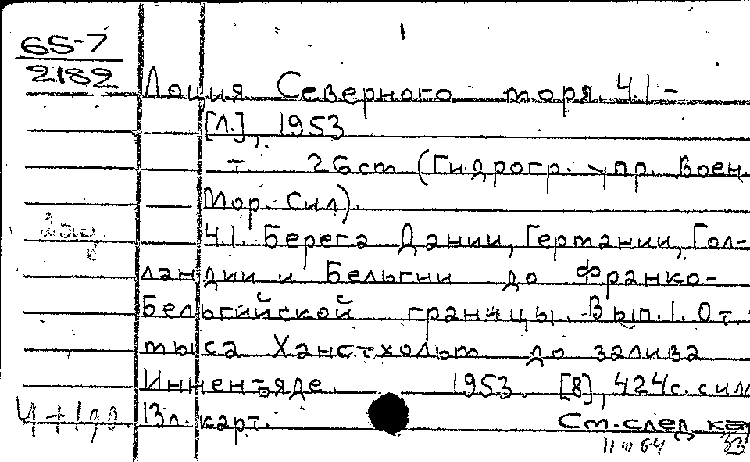 65-7
2182
Лоция Северного моря. Ч.1-
[Л.], 1953
т 26 cm (Гидрогр. упр. Воен.
Мор. Сил).
Ч1. Берега Дании, Германии, Гол-
ландии и Бельгии до франко-
Бельгийской границы. Вып.1. От
мыса Ханстхольм до залива
Инненъяде. 1953. [8], 424с. с илл
13л. карт.
См. след. кар